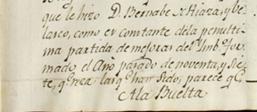 que le hizo D. Bernabe
larco, como es constante de la penulti
ma partida de mejoras del Imb. for
mado el Año pasado de noventa, y sie
te, q. sido, parece q.
A la Buelta